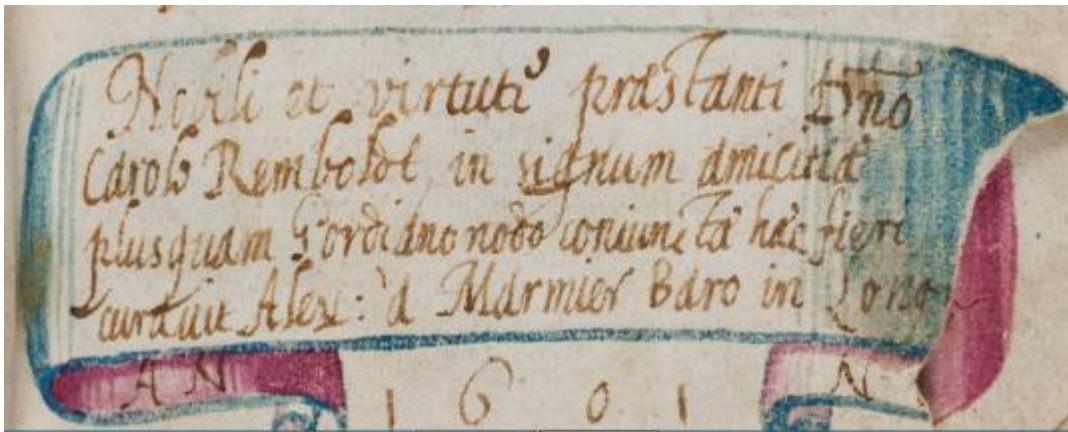 Nobili et virtute præstanti Dn̄o
Carolo Remboldt in signum amicitiæ
plusquam Gordiano nodo coniunctæ hæc fieri
curauit Alex: à Marmier Baro in Long
AN N
1601